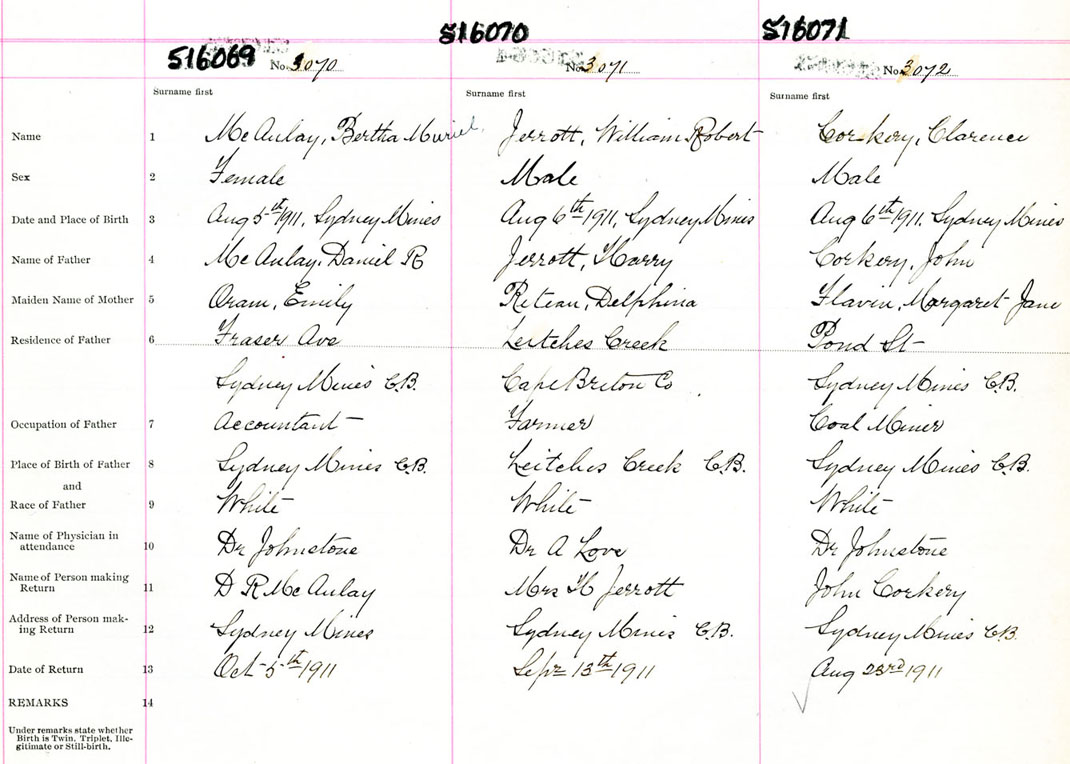 516069 No. 3070
516070 No. 3071
516071 No. 3072
Surname first Surname first Surname first
Name 1 McAulay, Bertha Muriel Jerrott, William Robert Corkery, Clarence
Sex 2 Female Male Male
Date and Place of Birth 3 Aug 5th 1911, Sydney Mines Aug 6th 1911, Sydney Mines Aug 6th 1911, Sydney Mines
Name of Father 4 McAulay, Daniel R Jerrott, Harry Corkery, John
Maiden Name of Mother 5 Oram, Emily Delphina Flavin, Margaret Jane
Residence of Father 6 Fraser Ave Leitches Creek Pond St
Sydney Mines C.B. Cape Breton Co Sydney Mines C.B.
Occupation of Father 7 Accountant Farmer Coal Miner
Place of Birth of Father 8 Sydney Mines C.B. Leitches Creek C.B. Sydney Mines C.B.
and
Race of Father 9 White White White
Name of Physician in
attendance 10 Dr Johnstone Dr A Love Dr Johnstone
Name of Person making
Return 11 D R McAulay Mrs H Jerrott John Corkery
Address of Person mak-
ing Return 12 Sydney Mines Sydney Mines C.B. Sydney Mines C.B.
Date of Return 13 Oct 5th 1911 Sept 13th 1911 Aug 23rd 1911
REMARKS 14
Under remarks state whether
Birth is Twin, Triplet, Ille-
gitimate or Still-birth.